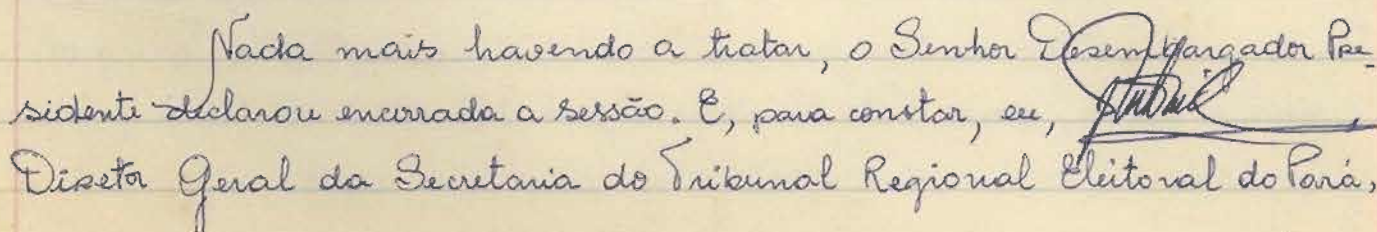 Nada mais havendo a tratar, o Senhor Desembargador Pre-
sidente declarou encerrada a sessão. E, para constar, eu,
Diretor Geral da Secretaria do Tribunal Regional Eleitoral do Pará,